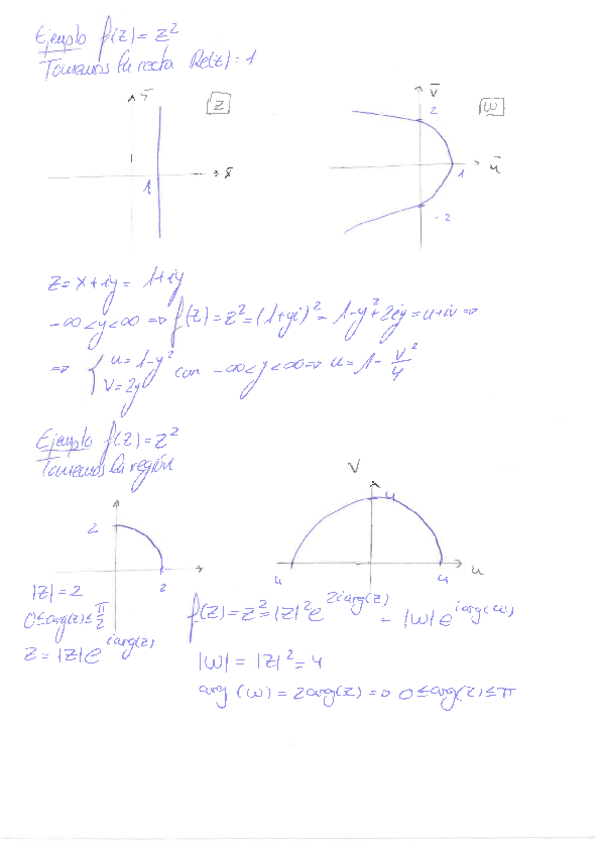 Ejemplo f(z) = z²
Tomemos la recta Re(z) = 1
Y
z
X
1
V
w
2
u
1
-2
z = x + iy = 1 + iy
-∞ < y < ∞ => f(z) = z² = (1+yi)² = 1 - y² + 2iy = u + iv =>
=> { u = 1 - y²
v = 2y
con -∞ < y < ∞ => u = 1 - v²/4
Ejemplo f(z) = z²
Tomemos la región
2
2
V
4
4
4
u
|z| = 2
0 ≤ arg(z) ≤ π/2
z = |z| e^{i arg(z)}
f(z) = z² = |z|² e^{2i arg(z)} = |w| e^{i arg(w)}
|w| = |z|² = 4
arg (w) = 2arg(z) => 0 ≤ arg(z) ≤ π